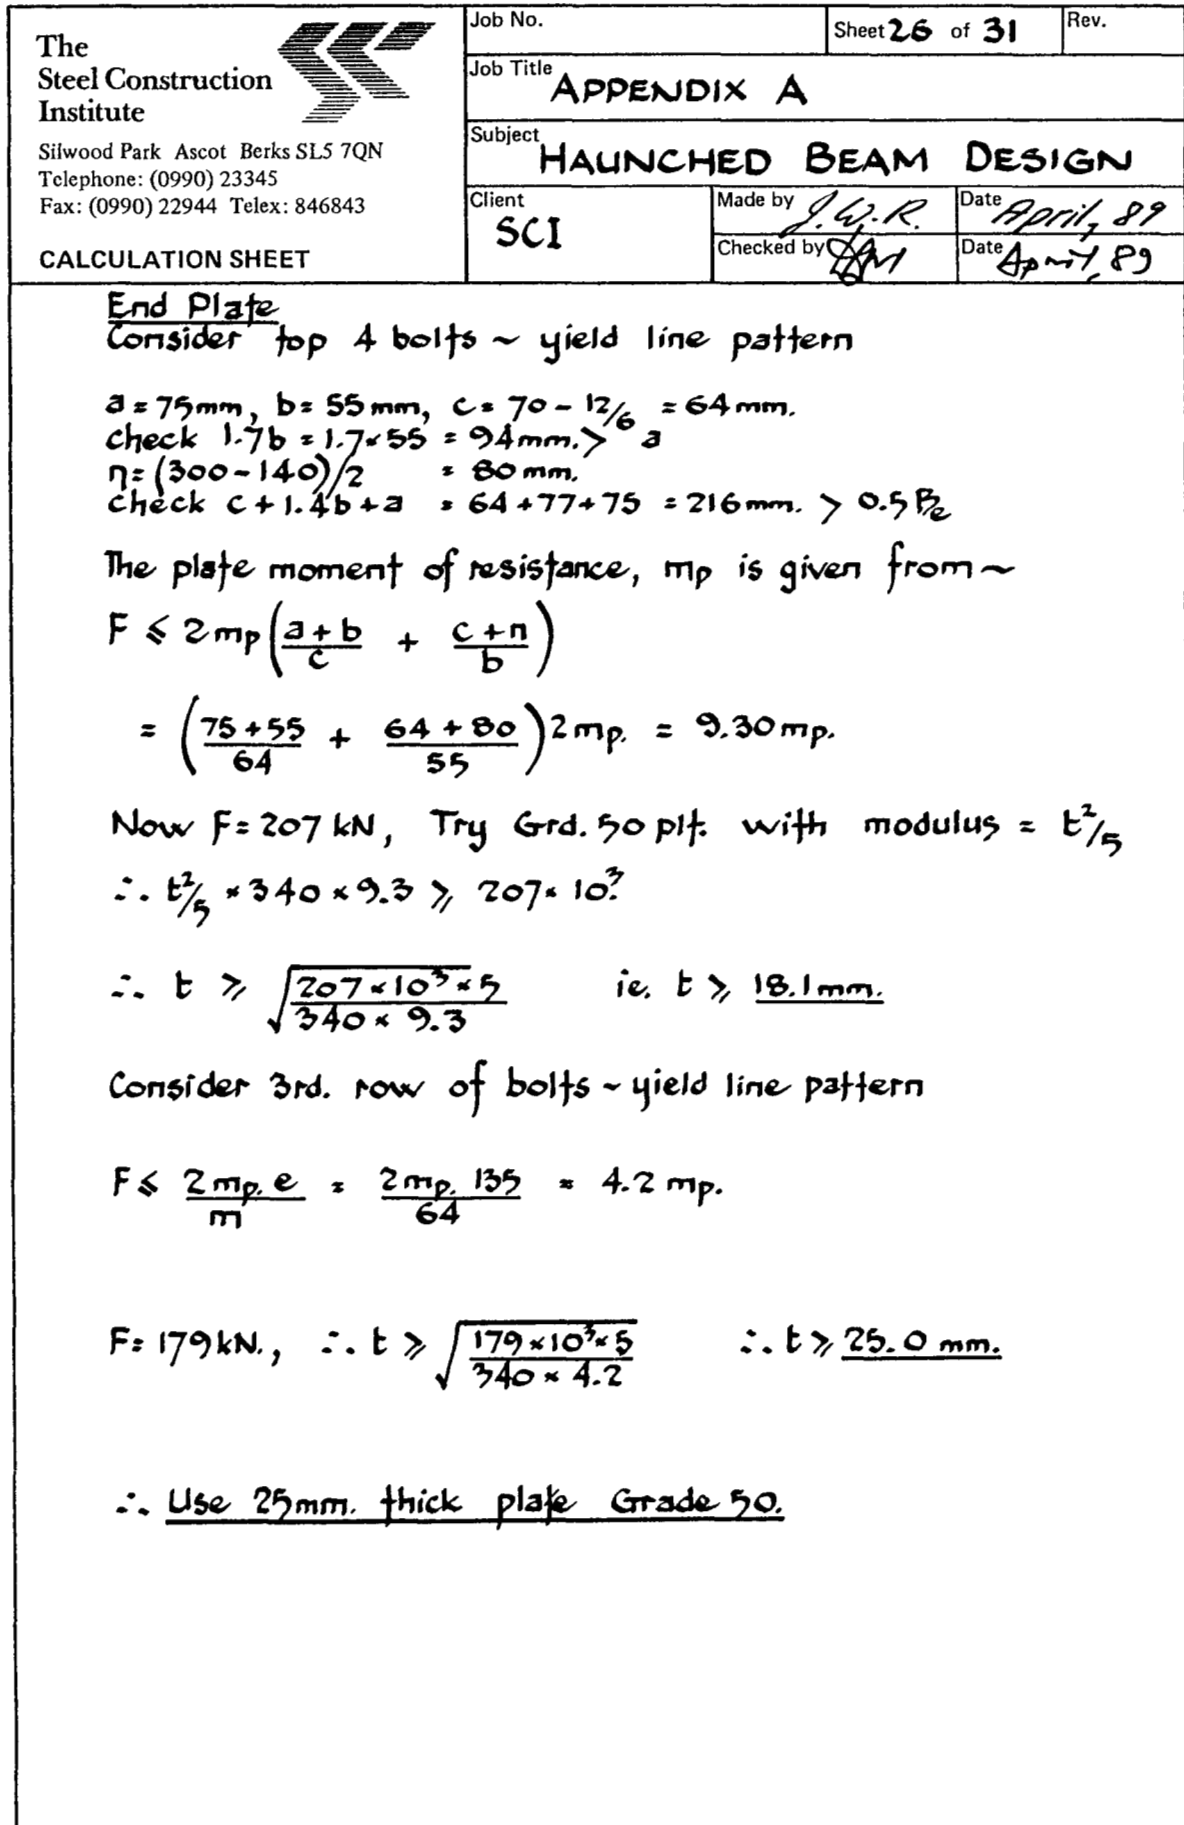 The
Steel Construction
Institute
Silwood Park Ascot Berks SL5 7QN
Telephone: (0990) 23345
Fax: (0990) 22944 Telex: 846843
CALCULATION SHEET
Job No.
Sheet 26 of 31
Rev.
Job Title APPENDIX A
Subject HAUNCHED BEAM DESIGN
Client SCI
Made by J.W.R.
Date April, 89
Checked by
Date April, 89
End Plate
Consider top 4 bolts ~ yield line pattern
a = 75mm, b = 55mm, c = 70 - 12/6 = 64mm.
check 1.7b = 1.7×55 = 94mm. > a
n = (300-140)/2 = 80mm.
check c + 1.4b + a = 64+77+75 = 216mm. > 0.5 Pe
The plate moment of resistance, mp is given from ~
F ≤ 2mp ( (a+b)/c + (c+n)/b )
= ( (75+55)/64 + (64+80)/55 ) 2mp. = 9.30mp.
Now F = 207 kN, Try Grd. 50 plt. with modulus = t²/5
∴ t²/5 × 340 × 9.3 ≥ 207×10³.
∴ t ≥ √( (207×10³×5)/(340×9.3) ) ie. t ≥ 18.1mm.
Consider 3rd. row of bolts ~ yield line pattern
F ≤ (2mp. e)/m = (2mp. 135)/64 = 4.2mp.
F = 179kN., ∴ t ≥ √( (179×10³×5)/(340×4.2) ) ∴ t ≥ 25.0 mm.
∴ Use 25mm. thick plate Grade 50.